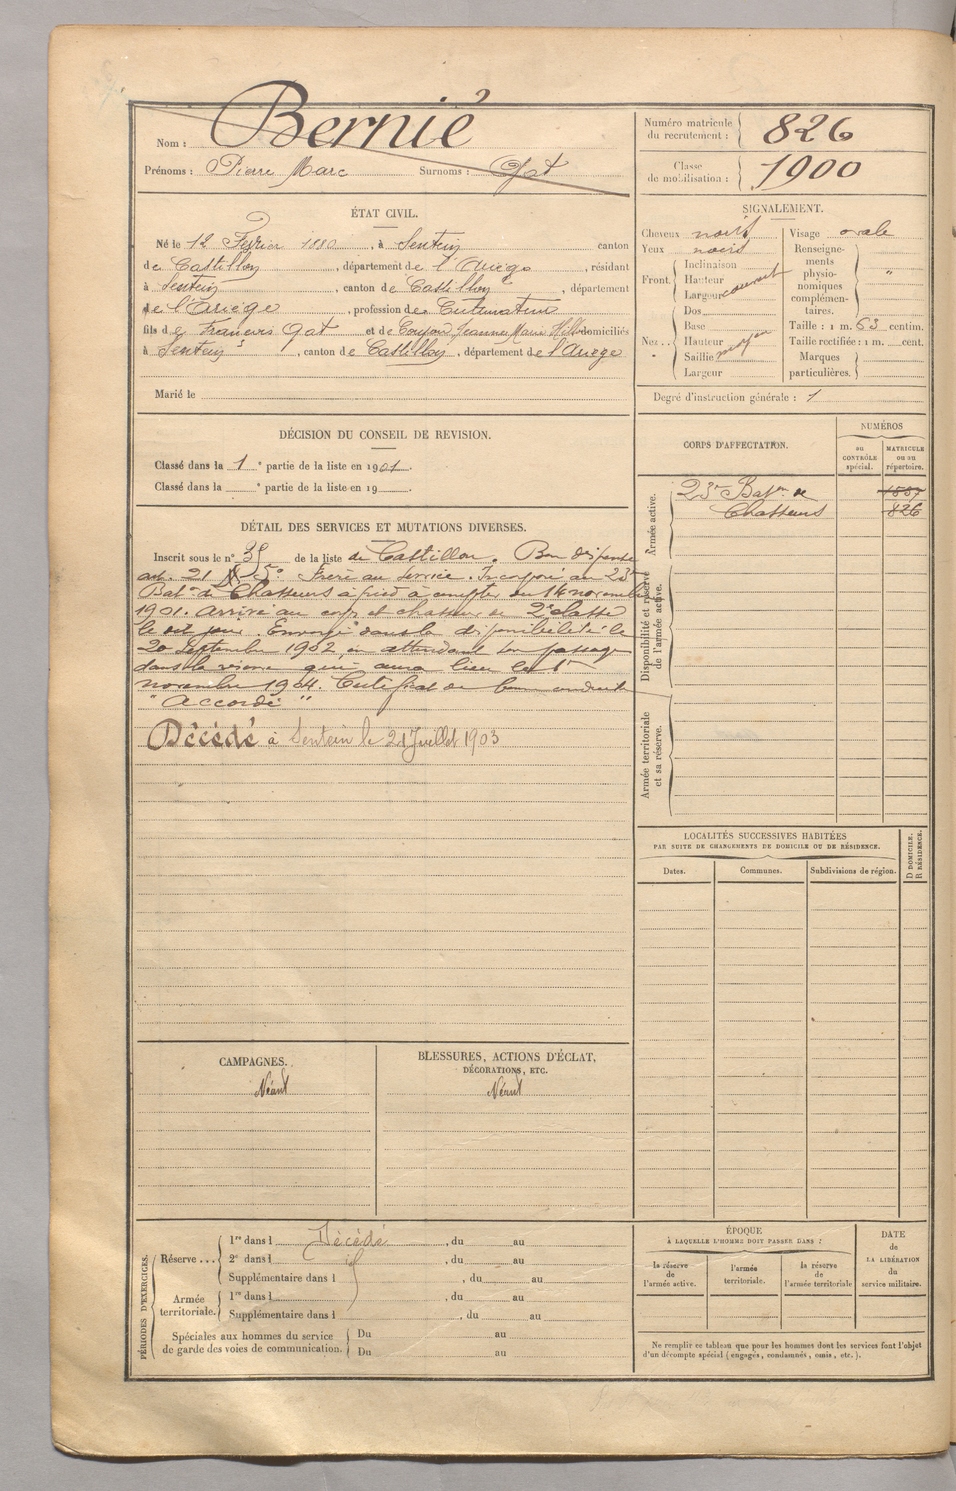 Nom : Bernié
Prénoms : Pierre Marc Surnoms : Gat
Numéro matricule du recrutement : 826
Classe de mobilisation : 1900
ÉTAT CIVIL.
Né le 12 Février 1880, à Sentein canton
de Castillon, département de l'Ariège, résidant
à Sentein, canton de Castillon, département
de l'Ariège, profession de Cultivateur
fils de Francois Gat et de Jeanne Marie domiciliés
à Sentein, canton de Castillon, département de l'Ariège
Marié le
SIGNALEMENT.
Cheveux noirs
Yeux noirs
Front.
Inclinaison
Hauteur
Largeur couvert
Nez..
Dos
Base
Hauteur
Saillie moyen
Largeur
Visage ovale
Renseigne-
ments
physio-
nomiques
complémen-
taires. "
Taille : 1 m. 63 centim.
Taille rectifiée : 1 m. cent.
Marques
particulières.
Degré d'instruction générale : 1
DÉCISION DU CONSEIL DE REVISION.
Classé dans la 1e partie de la liste en 1901.
Classé dans la e partie de la liste en 19 .
CORPS D'AFFECTATION.
NUMÉROS
au
CONTRÔLE
spécial.
MATRICULE
ou au
répertoire.
Armée active.
23e Baton de 1557
Chasseurs 826
Disponibilité et réserve
de l'armée active.
Armée territoriale
et sa réserve.
DÉTAIL DES SERVICES ET MUTATIONS DIVERSES.
Inscrit sous le n° 35 de la liste de Castillon. Bon dispensé
art. 21 5° Frère au service. Incorporé au 23e
Baton de Chasseurs à pied à compter du 14 novembre
1901. Arrivé au corps et chasseur de 2e classe
le dit jour. Envoyé dans la disponibilité le
20 Septembre 1902, en attendant son passage
dans la réserve qui aura lieu le 1er
novembre 1904. Certificat de bonne conduite
"Accordé"
Décédé à Sentein le 21 Juillet 1903
LOCALITÉS SUCCESSIVES HABITÉES
PAR SUITE DE CHANGEMENTS DE DOMICILE OU DE RÉSIDENCE.
Dates.
Communes.
Subdivisions de région.
D DOMICILE.
R RÉSIDENCE.
CAMPAGNES.
Néant
BLESSURES, ACTIONS D'ÉCLAT,
DÉCORATIONS, ETC.
Néant
PÉRIODES D'EXERCICES.
Réserve...
1re dans l Décédé, du au
2e dans l , du au
Supplémentaire dans l , du au
Armée
territoriale.
1re dans l , du au
Supplémentaire dans l , du au
Spéciales aux hommes du service
de garde des voies de communication.
Du au
Du au
ÉPOQUE
À LAQUELLE L'HOMME DOIT PASSER DANS :
la réserve
de
l'armée active.
l'armée
territoriale.
la réserve
de
l'armée territoriale
DATE
de
LA LIBÉRATION
du
service militaire.
Ne remplir ce tableau que pour les hommes dont les services font l'objet
d'un décompte spécial (engagés, condamnés, omis, etc.).